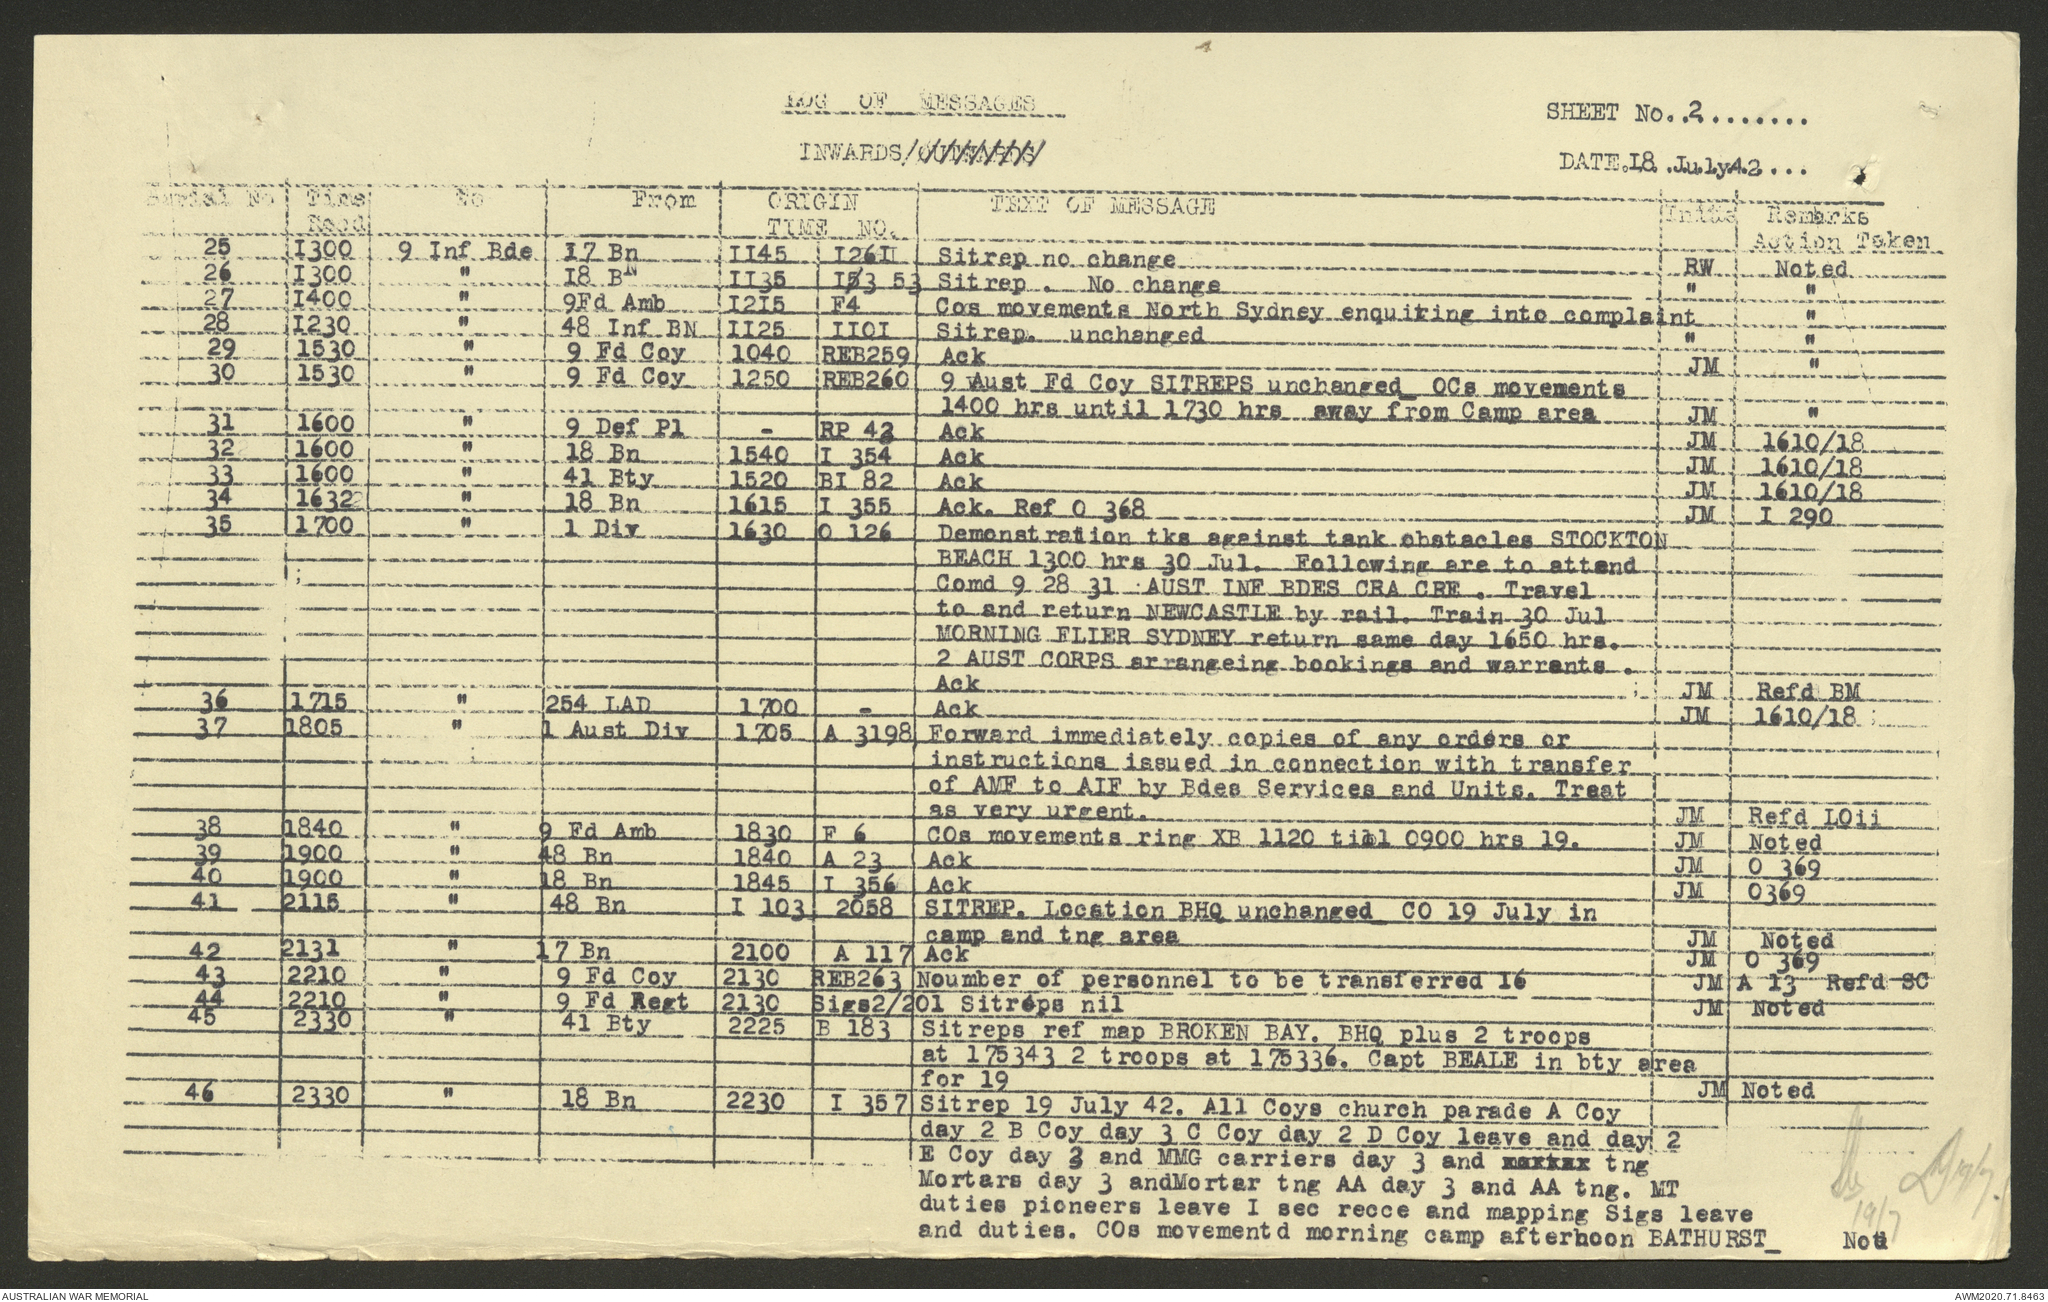 LOG OF MESSAGES
INWARDS/OUTWARDS
SHEET No..2........
DATE.18 .July.42...
Serial No Time Recd To From ORIGIN TIME NO. TEXT OF MESSAGE Initls Remarks Action Taken
25 I300 9 Inf Bde I7 Bn II45 I26II Sitrep no change RW Noted
26 I300 " I8 BN II35 I53 53 Sitrep . No change " "
27 I400 " 9Fd Amb I2I5 F4 Cos movements North Sydney enquiring into complaint "
28 I230 " 48 Inf BN II25 II0I Sitrep. unchanged " "
29 1530 " 9 Fd Coy 1040 REB259 Ack JM "
30 1530 " 9 Fd Coy 1250 REB260 9 Aust Fd Coy SITREPS unchanged OCs movements
1400 hrs until 1730 hrs away from Camp area JM "
31 1600 " 9 Def Pl - RP 42 Ack JM 1610/18
32 1600 " 18 Bn 1540 I 354 Ack JM 1610/18
33 1600 " 41 Bty 1520 BI 82 Ack JM 1610/18
34 1632 " 18 Bn 1615 I 355 Ack. Ref O 368 JM I 290
35 1700 " 1 Div 1630 O 126 Demonstration tks against tank obstacles STOCKTON
BEACH 1300 hrs 30 Jul. Following are to attend
Comd 9 28 31 AUST INF BDES CRA CRE . Travel
to and return NEWCASTLE by rail. Train 30 Jul
MORNING FLIER SYDNEY return same day 1650 hrs.
2 AUST CORPS arrangeing bookings and warrants .
Ack JM Refd BM
36 1715 " 254 LAD 1700 - Ack JM 1610/18
37 1805 " 1 Aust Div 1705 A 3198 Forward immediately copies of any orders or
instructions issued in connection with transfer
of AMF to AIF by Bdes Services and Units. Treat
as very urgent. JM Refd LOii
38 1840 " 9 Fd Amb 1830 F 6 COs movements ring XB 1120 till 0900 hrs 19. JM Noted
39 1900 " 48 Bn 1840 A 23 Ack JM O 369
40 1900 " 18 Bn 1845 I 356 Ack JM O369
41 2115 " 48 Bn I 103 2058 SITREP. Location BHQ unchanged CO 19 July in
camp and tng area JM Noted
42 2131 " 17 Bn 2100 A 117 Ack JM O 369
43 2210 " 9 Fd Coy 2130 REB263 Noumber of personnel to be transferred 16 JM A 13 Refd SC
44 2210 " 9 Fd Regt 2130 Sigs2/201 Sitreps nil JM Noted
45 2330 " 41 Bty 2225 B 183 Sitreps ref map BROKEN BAY. BHQ plus 2 troops
at 175343 2 troops at 175336. Capt BEALE in bty area
for 19 JM Noted
46 2330 " 18 Bn 2230 I 357 Sitrep 19 July 42. All Coys church parade A Coy
day 2 B Coy day 3 C Coy day 2 D Coy leave and day 2
E Coy day 3 and MMG carriers day 3 and tng
Mortars day 3 andMortar tng AA day 3 and AA tng. MT
duties pioneers leave I sec recce and mapping Sigs leave
and duties. COs movementd morning camp afternoon BATHURST_ Notd
19/7 19/7.
AUSTRALIAN WAR MEMORIAL
AWM2020.71.8463